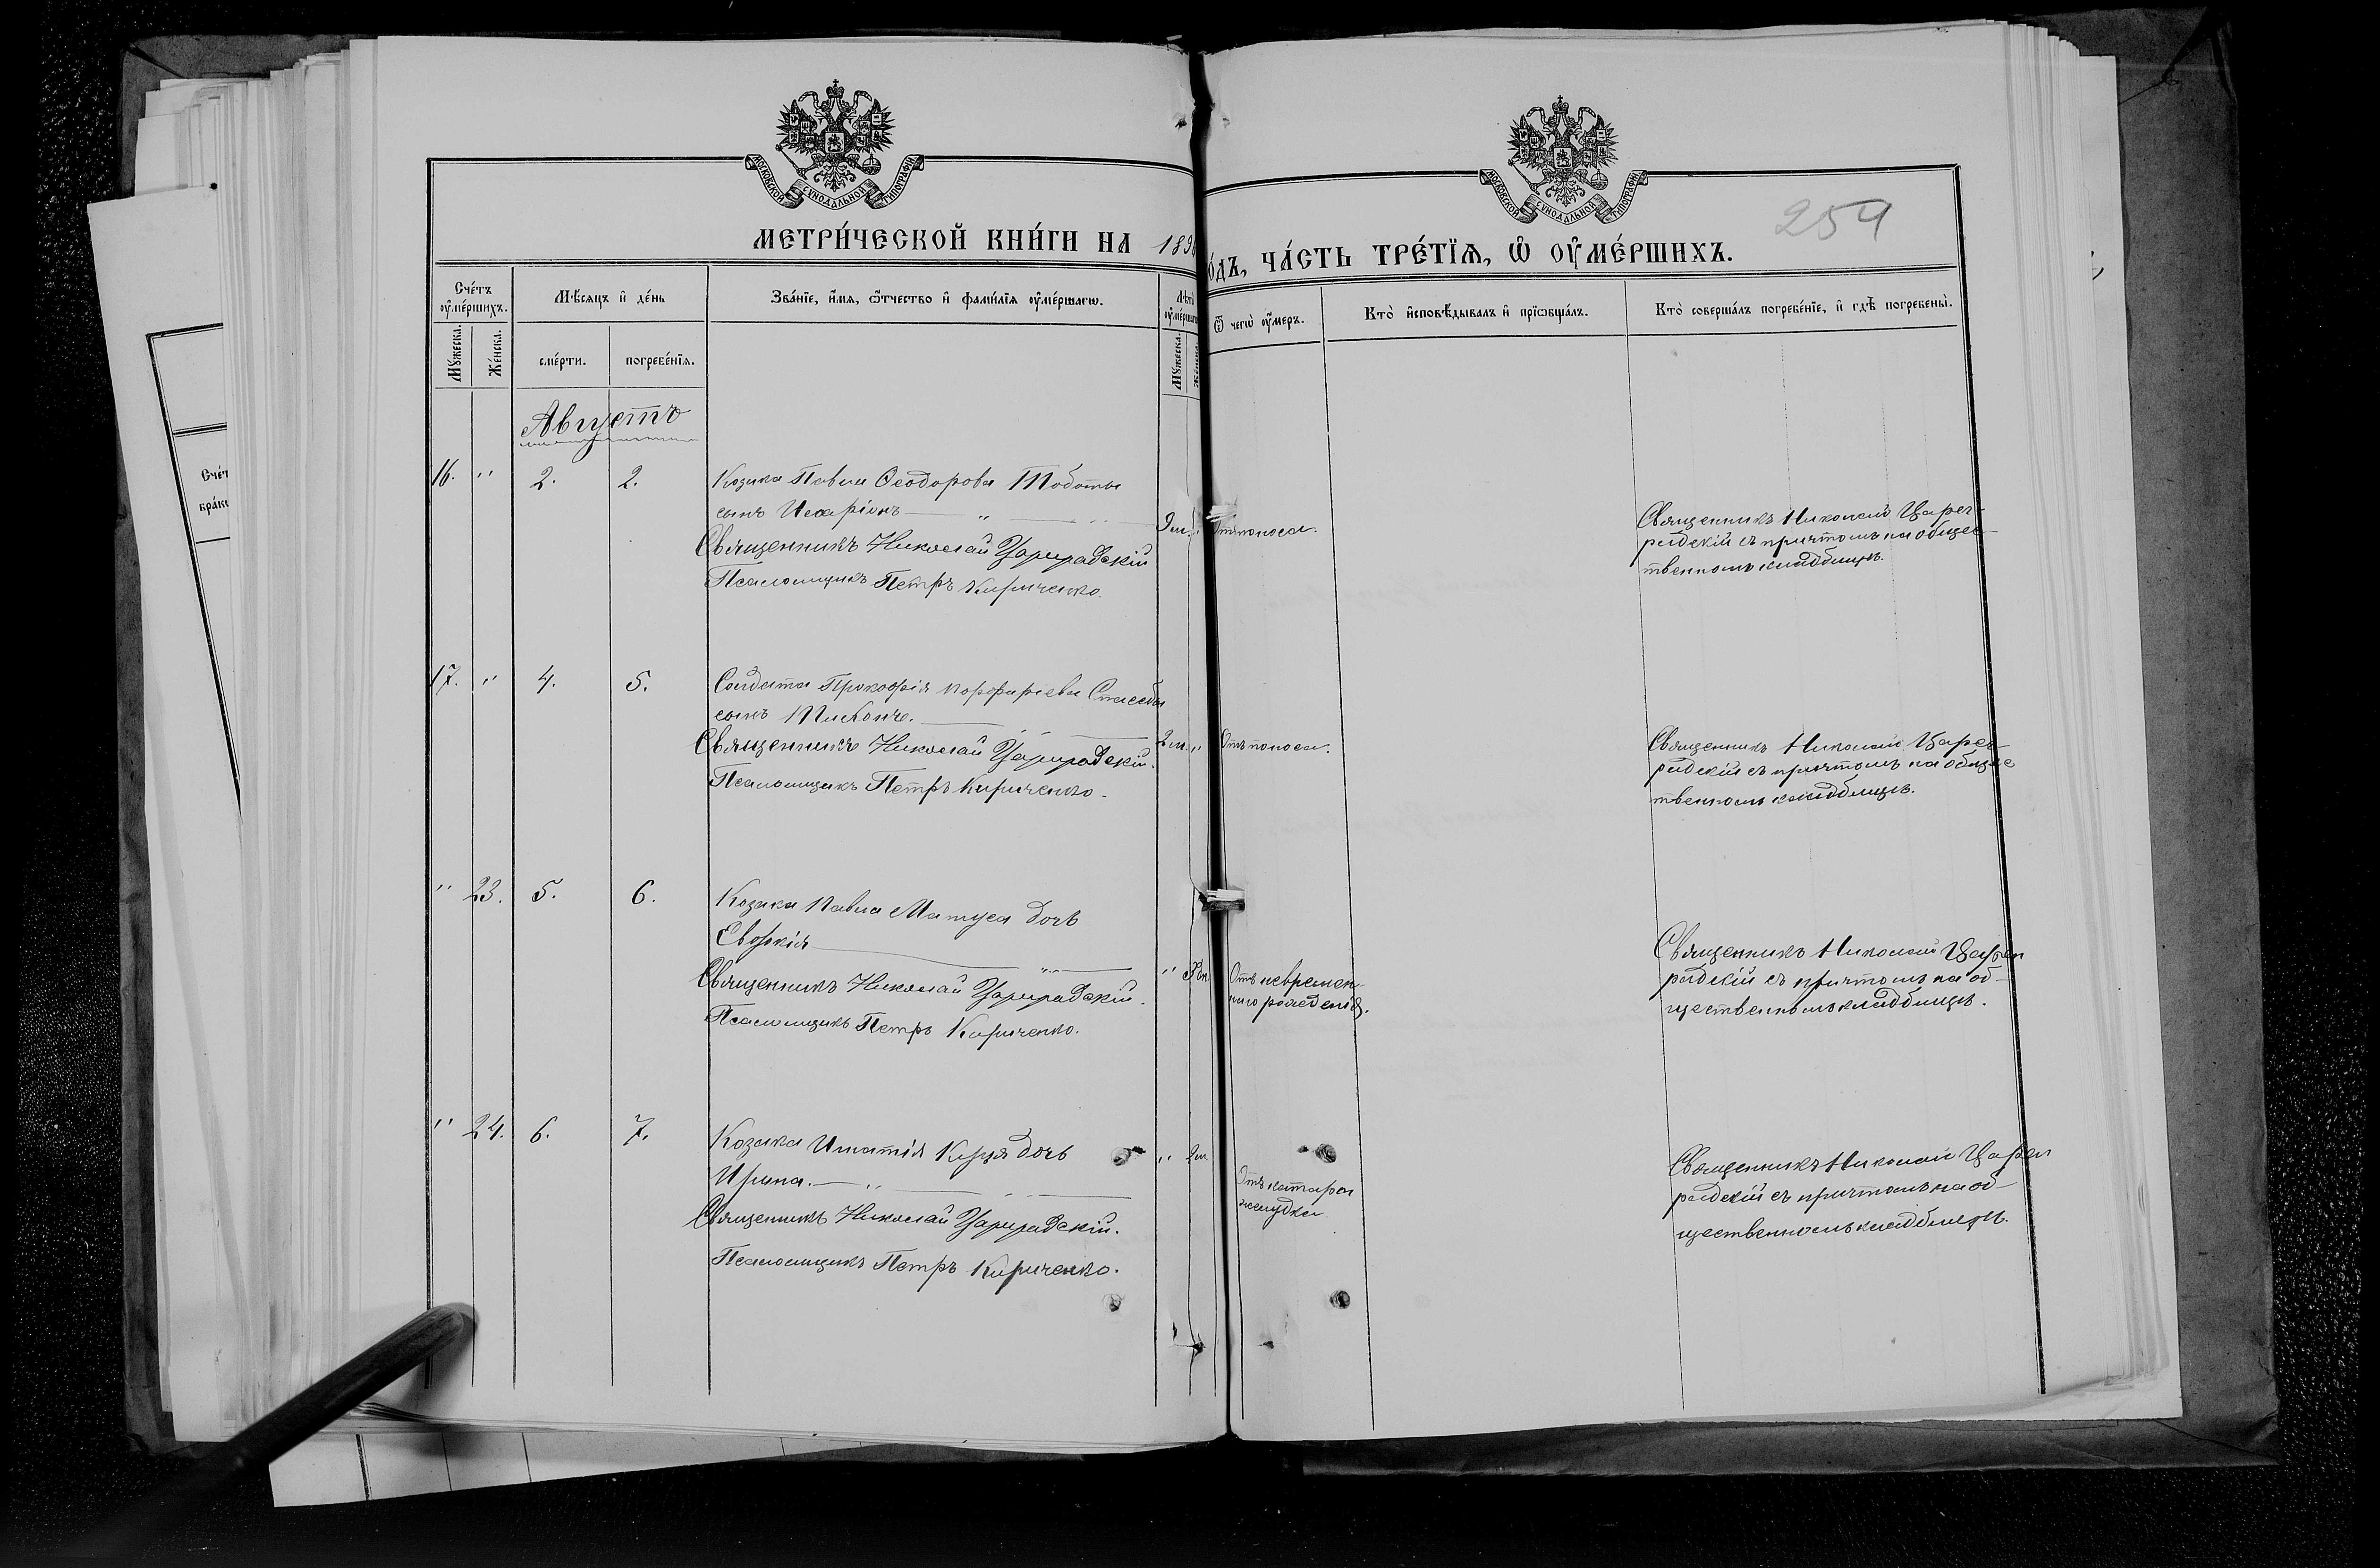 МОСКОВСКОЙ СУНОДАЛЬНОЙ ТИПОГРАФІИ
МОСКОВСКОЙ СУНОДАЛЬНОЙ ТИПОГРАФІИ
254
МЕТРИ́ЧЕСКОЙ КНИ́ГИ НА 189
О́ДЪ, ЧА́СТЬ ТРЕ́ТЇѦ, Ѡ҆ ОУ҆МЕ́РШИХЪ.
Сче́тъ оу҆ме́ршихъ.
Мꙋ́жеска.
Же́нска.
Мѣ́сяцъ и҆ де́нь
сме́рти.
погребе́нїѧ.
Зва́нїе, и҆́мѧ, ѻ҆́тчество и҆ фами́лїѧ оу҆ме́ршагѡ.
Лѣ́та
Мꙋ́жеска.
Ѿ чегѡ̀ оу҆́меръ.
Кто̀ и҆сповѣ́дывалъ и҆ прїѡбща́лъ.
Кто̀ соверша́лъ погребе́нїе, и҆ гдѣ̀ погребены̀.
Августъ
16. " 2. 2.
Козака Павла Ѳеодорова
сынъ Иларіонъ
Священникъ Николай Цареградскій
Псаломщикъ Петръ Кириченко.
Отъ поноса.
Священникъ Николай Царег-
радскій съ причтомъ на общес-
твенномъ кладбищѣ.
17. " 4. 5.
Солдата Прокофія Порфиріева
сынъ
Священникъ Николай Цареградскій.
Псаломщикъ Петръ Кириченко.
2 м. " Отъ поноса.
Священникъ Николай Царег-
радскій съ причтомъ на общес
твенномъ кладбищѣ.
" 23. 5. 6.
Козака Павла Матуса дочь
Евдокія
Священникъ Николай Цареградскій.
Псаломщикъ Петръ Кириченко.
Отъ невремен-
наго рожденія.
Священникъ Николай Царег
радскій съ причтомъ на об-
щественномъ кладбищѣ.
" 24. 6. 7.
Козака Игнатія дочь
Ирина.
Священникъ Николай Цареградскій.
Псаломщикъ Петръ Кириченко.
Отъ катара
желудка
Священникъ Николай Царег
радскій съ причтомъ на об-
щественномъ кладбищѣ.